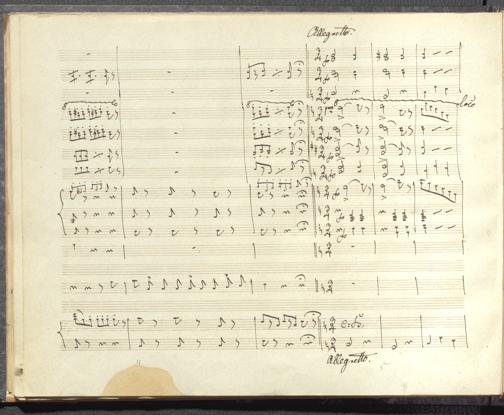 Allegretto.
loco
Allegretto.